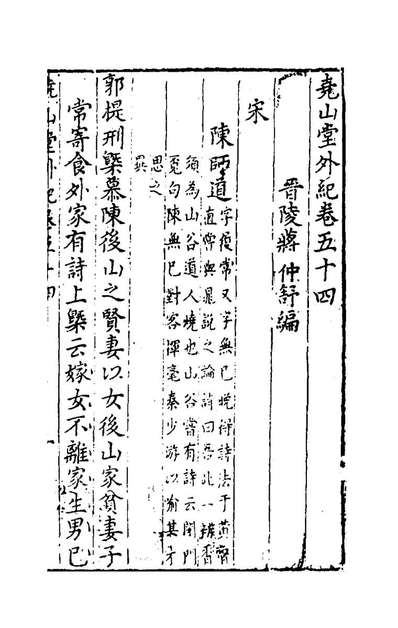 堯山堂外紀卷五十四
晉陵蔣仲舒編
宋
陳師道
字履常又字無已晚得詩法于黃魯
直嘗與晁說之論詩曰吾此一瓣香
須為山谷道人燒也山谷嘗有詩云閉門
覓句陳無已對客揮毫秦少游以喻其才
思之
異
郭提刑槩慕陳後山之賢妻以女後山家貧妻子
常寄食外家有詩上槩云嫁女不離家生男已
堯山堂外紀卷五十四
一